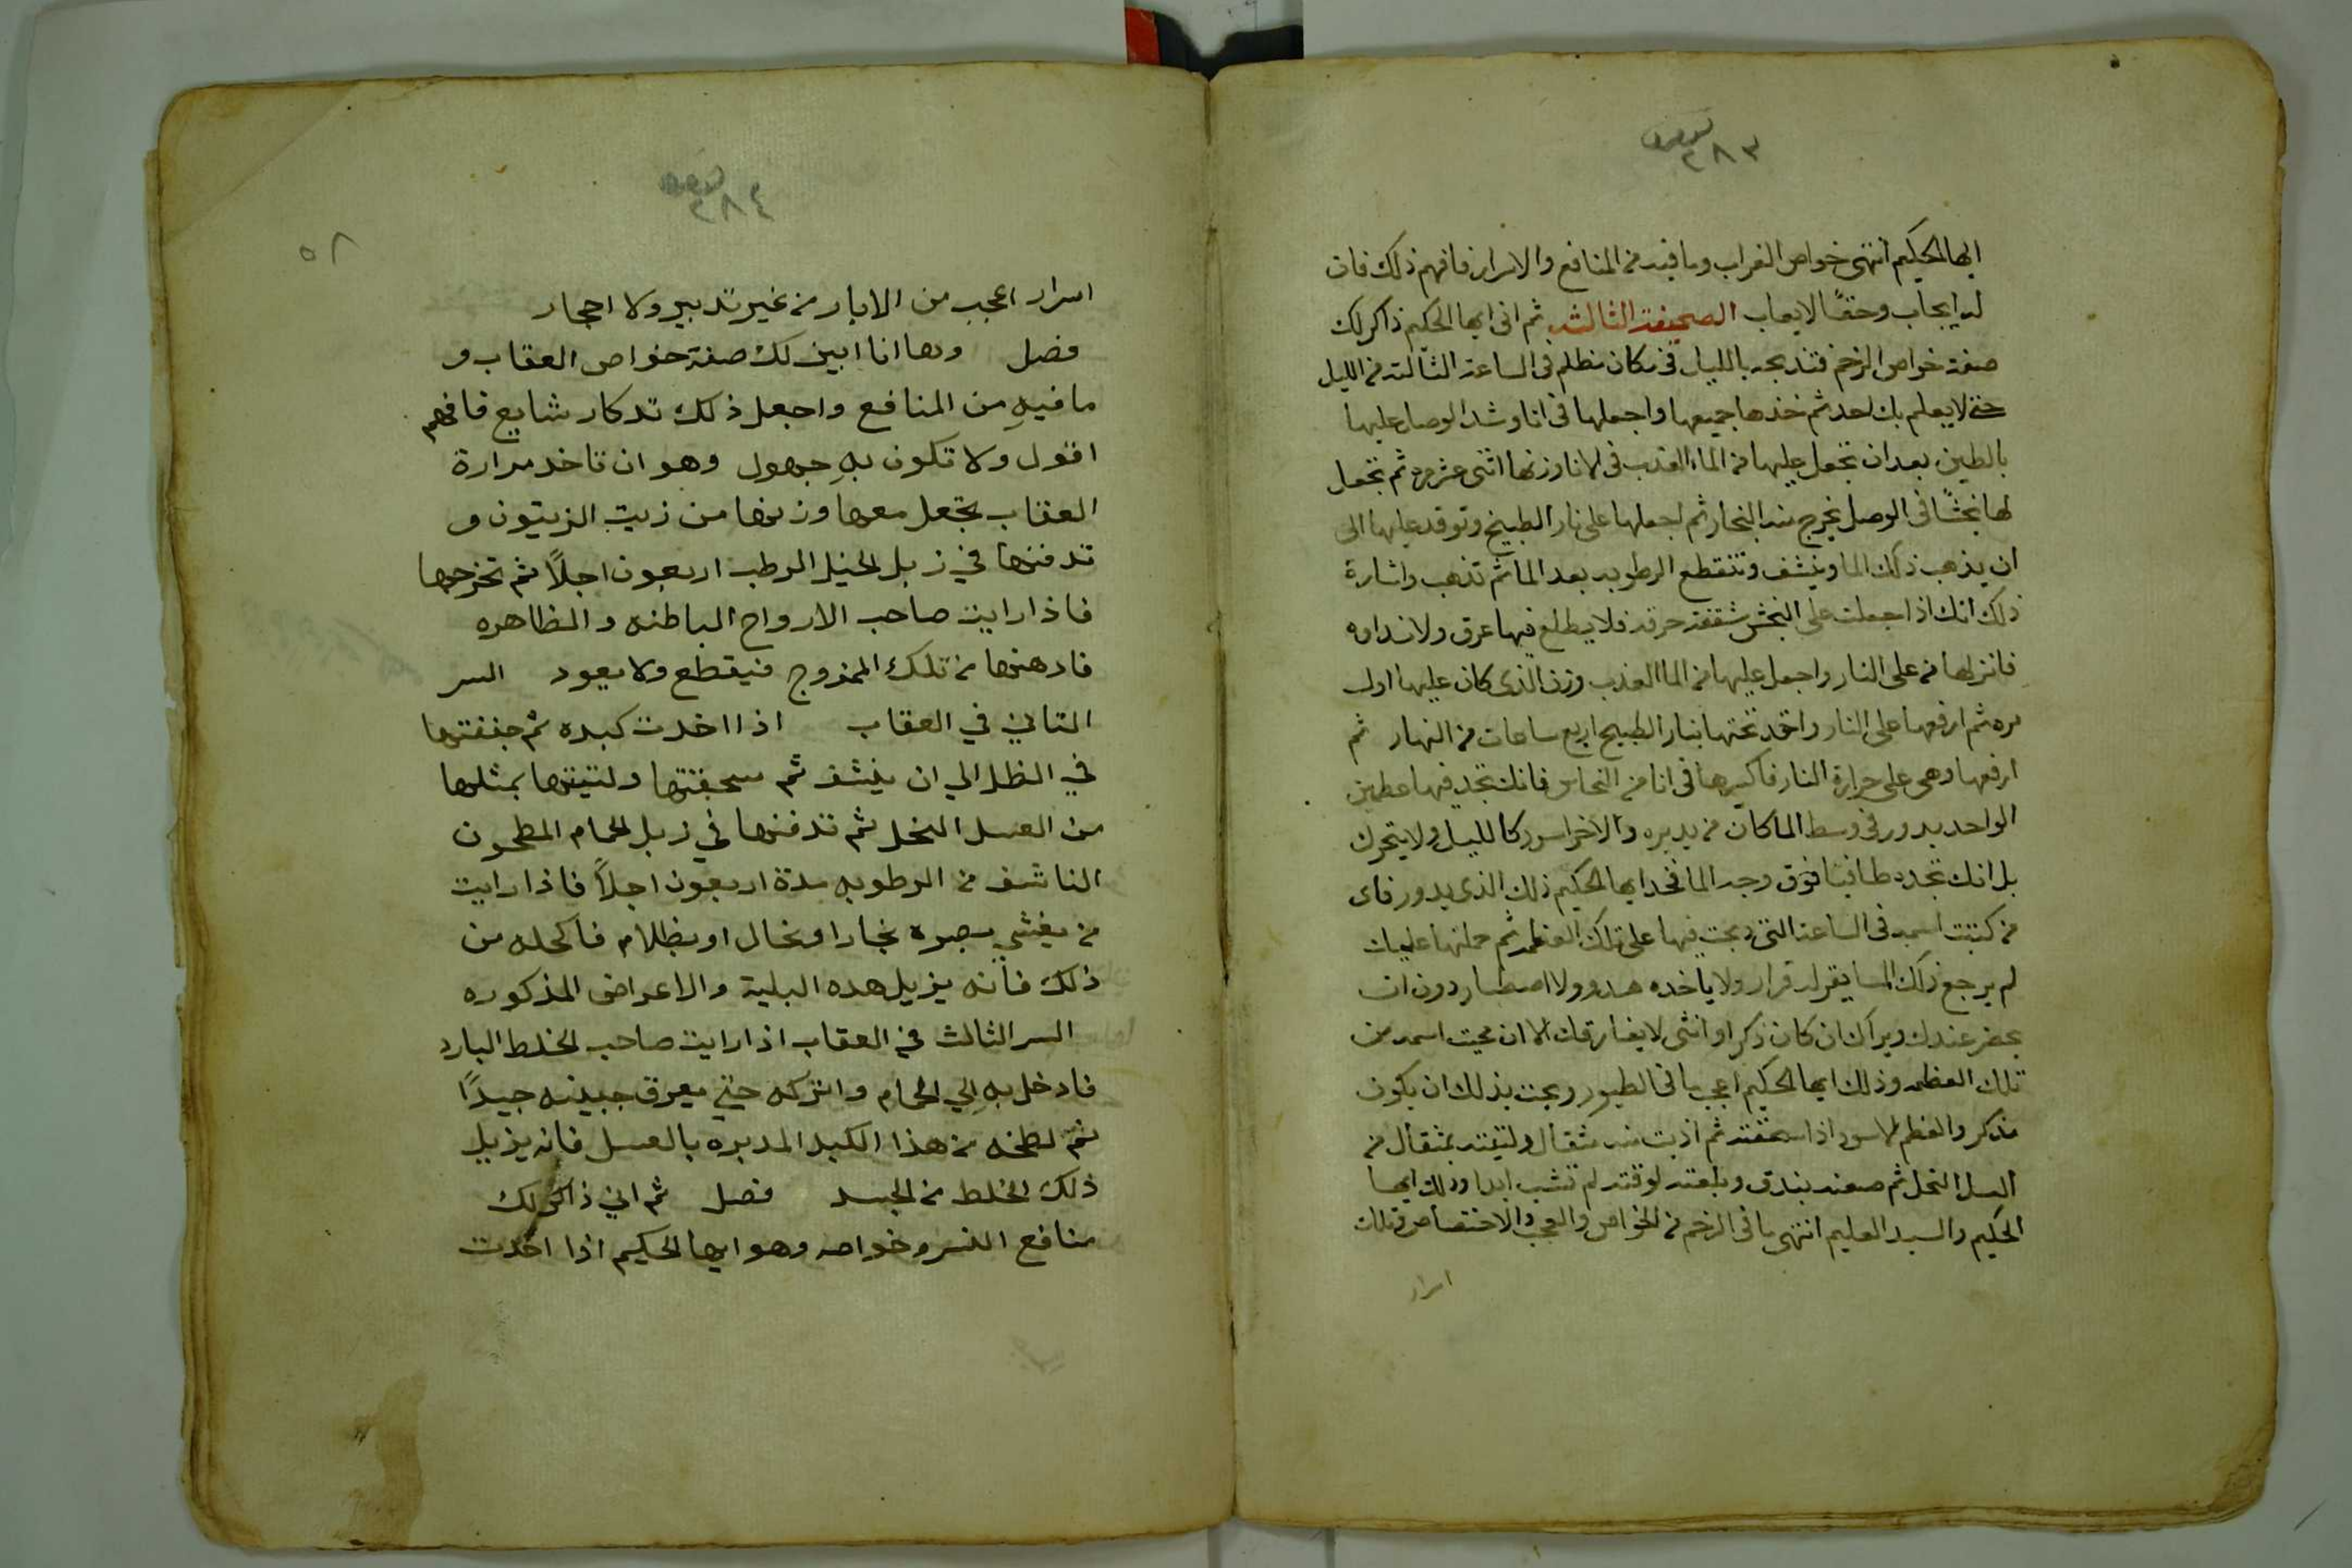 ٢٨٣
ايها الحكيم انتهى خواص الغراب وما فيه من المنافع والاسرار فافهم ذلك فان
له ايجاب وحقًا لا يعاب الصحيفة الثالثه ثم انى ايها الحكيم ذاكر لك
صفة خواص الرخم فتذبحه بالليل فى مكان مظلم فى الساعة الثالثه من الليل
حتى لا يعلم بك احد ثم خذها جميعها واجعلها فى انا وشد الوصل عليها
بالطين بعد ان تجعل عليها من الماء العذب فى الانا وزنها اثنى عشر مره ثم تجعل
لها بخشًا فى الوصل يخرج منه البخار ثم اجعلها على نار الطبيخ وتوقد عليها الى
ان يذهب ذلك الما وينشف وتنقطع الرطوبه بعد الما ثم تذهب واشارة
ذلك انك اذا جعلت على البخش شقفة خرقه فلا يطلع فيها عرق ولا نداوه
فانزلها من على النار واجعل عليها من الما العذب وزن الذى كان عليها اول
مره ثم ارفعها على النار واقد تحتها بنار الطبيخ اربع ساعات من النهار ثم
ارفعها وهى على حرارة النار فاكبرها فى انا من النحاس فانك تجد فيها عظمين
الواحد يدور فى وسط الما كان من يديره والاخر اسود كالليل ولا يتحرك
بل انك تجده طافيا فوق وجه الما فخد ايها الحكيم ذلك الذى يدور فاى
من كتبت اسمه فى الساعة التى دبحت فيها على تلك العظمه ثم حملتها عليك
لم يرجع ذلك المسا يقر له قرار ولا ياخده هدو ولا اصطبار دون ان
يحضر عندك ويراك ان كان ذكر او انثى لا يفارقك الا ان محيت اسمه من
تلك العظمه وذلك ايها الحكيم اعجب ما فى الطيور ويجب بذلك ان يكون
مذكر والعظم الاسود اذا سحقته ثم اذبت منه مثقال ولتيته بمثقال من
العسل النحل ثم صعنه بندق وبلعته لوقته لم تشب ابدا وذلك ايها
الحكيم والسيد العليم انتهى ما فى الرخم من الخواص والعجب والاختصاص وتلك
اسرار
٢٨٤
٥٨
اسرار اعجب من الابار من غير تدبير ولا احجار
فصل وها انا ابين لك صفة خواص العقاب و
ما فيهِ من المنافع واجعل ذلك تدكار شايع فافهم
اقول ولا تكون بهِ جهول وهو ان تاخد مرارة
العقاب تجعل معها وزنها من زيت الزيتون و
تدفنها في زبل الخيل الرطب اربعون اجلاً ثم تخرجها
فاذا رايت صاحب الارواح الباطنه والظاهره
فادهنها من تلك الممزوج فيقطع ولا يعود السر
التاني في العقاب اذا اخدت كبده ثم جففتها
في الظل الي ان ينشف ثم سحقتها ولتيتها بمثلها
من العسل النحل ثم تدفنها في زبل الحمام المطحون
الناشف من الرطوبه مدة اربعون اجلاً فاذا رايت
من يغشي بصره بخارا وخال او بظلام فاكحله من
ذلك فانه يزيل هده البلية والاعراض المذكوره
السر الثالث في العقاب اذا رايت صاحب الخلط البارد
فادخل بهِ الي الحمام واتركه حتي يعرق جبينه جيدًا
ثم لطخه من هذا الكبد المدبره بالعسل فانه يزيل
ذلك الخلط من الجسد فصل ثم اني ذاكر لك
منافع النسر وخواصه وهو ايها الحكيم اذا اخدت